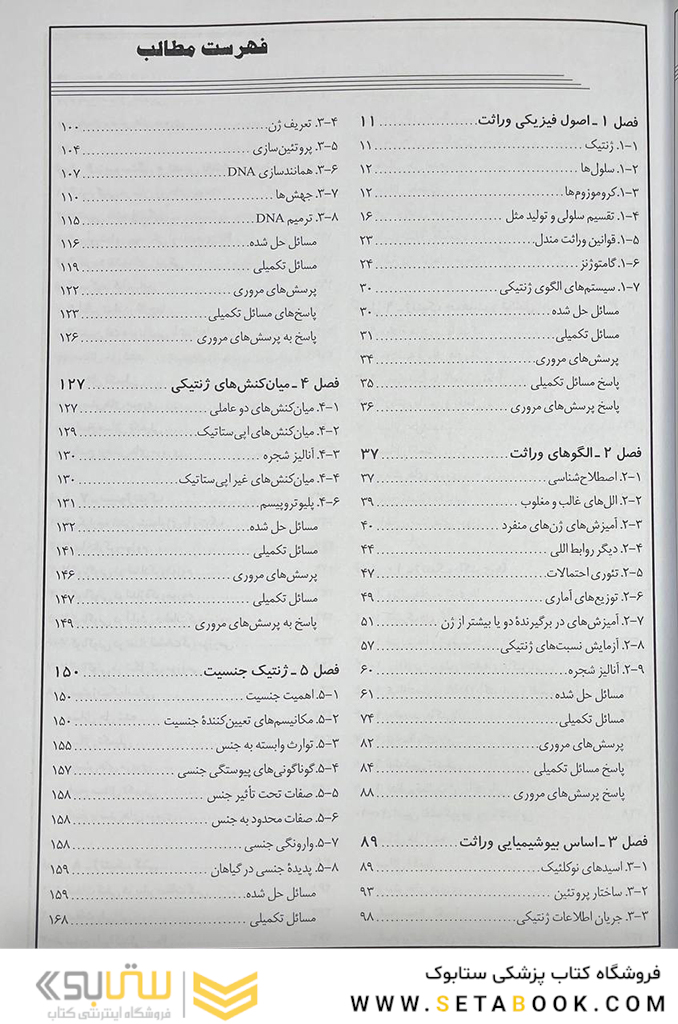 فهرست مطالب
فصل ۱ ـ اصول فیزیکی وراثت ........ ۱۱
۱-۱. ژنتیک ........ ۱۱
۱-۲. سلول‌ها ........ ۱۲
۱-۳. کروموزوم‌ها ........ ۱۲
۱-۴. تقسیم سلولی و تولید مثل ........ ۱۶
۱-۵. قوانین وراثت مندل ........ ۲۳
۱-۶. گامتوژنز ........ ۲۴
۱-۷. سیستم‌های الگوی ژنتیکی ........ ۳۰
مسائل حل شده ........ ۳۰
مسائل تکمیلی ........ ۳۱
پرسش‌های مروری ........ ۳۴
پاسخ مسائل تکمیلی ........ ۳۵
پاسخ پرسش‌های مروری ........ ۳۶
فصل ۲ ـ الگوهای وراثت ........ ۳۷
۲-۱. اصطلاح‌شناسی ........ ۳۷
۲-۲. الل‌های غالب و مغلوب ........ ۳۹
۲-۳. آمیزش‌های ژن‌های منفرد ........ ۴۰
۲-۴. دیگر روابط اللی ........ ۴۴
۲-۵. تئوری احتمالات ........ ۴۷
۲-۶. توزیع‌های آماری ........ ۴۹
۲-۷. آمیزش‌های در برگیرندهٔ دو یا بیشتر از ژن ........ ۵۱
۲-۸. آزمایش نسبت‌های ژنتیکی ........ ۵۷
۲-۹. آنالیز شجره ........ ۶۰
مسائل حل شده ........ ۶۱
مسائل تکمیلی ........ ۷۴
پرسش‌های مروری ........ ۸۲
پاسخ مسائل تکمیلی ........ ۸۴
پاسخ پرسش‌های مروری ........ ۸۸
فصل ۳ ـ اساس بیوشیمیایی وراثت ........ ۸۹
۳-۱. اسیدهای نوکلئیک ........ ۸۹
۳-۲. ساختار پروتئین ........ ۹۳
۳-۳. جریان اطلاعات ژنتیکی ........ ۹۸
۳-۴. تعریف ژن ........ ۱۰۰
۳-۵. پروتئین‌سازی ........ ۱۰۴
۳-۶. همانندسازی DNA ........ ۱۰۷
۳-۷. جهش‌ها ........ ۱۱۰
۳-۸. ترمیم DNA ........ ۱۱۵
مسائل حل شده ........ ۱۱۶
مسائل تکمیلی ........ ۱۱۹
پرسش‌های مروری ........ ۱۲۲
پاسخ‌های مسائل تکمیلی ........ ۱۲۳
پاسخ به پرسش‌های مروری ........ ۱۲۶
فصل ۴ ـ میان‌کنش‌های ژنتیکی ........ ۱۲۷
۴-۱. میان‌کنش‌های دو عاملی ........ ۱۲۷
۴-۲. میان‌کنش‌های اپی‌ستاتیک ........ ۱۲۹
۴-۳. آنالیز شجره ........ ۱۳۰
۴-۴. میان‌کنش‌های غیر اپی‌ستاتیک ........ ۱۳۰
۴-۶. پلیوتروپیسم ........ ۱۳۱
مسائل حل شده ........ ۱۳۲
مسائل تکمیلی ........ ۱۴۱
پرسش‌های مروری ........ ۱۴۶
مسائل تکمیلی ........ ۱۴۷
پاسخ به پرسش‌های مروری ........ ۱۴۹
فصل ۵ ـ ژنتیک جنسیت ........ ۱۵۰
۵-۱. اهمیت جنسیت ........ ۱۵۰
۵-۲. مکانیسم‌های تعیین‌کنندهٔ جنسیت ........ ۱۵۰
۵-۳. توارث وابسته به جنس ........ ۱۵۵
۵-۴. گوناگونی‌های پیوستگی جنسی ........ ۱۵۷
۵-۵. صفات تحت تأثیر جنس ........ ۱۵۸
۵-۶. صفات محدود به جنس ........ ۱۵۸
۵-۷. وارونگی جنسی ........ ۱۵۸
۵-۸. پدیدهٔ جنسی در گیاهان ........ ۱۵۹
مسائل حل شده ........ ۱۵۹
مسائل تکمیلی ........ ۱۶۸
فروشگاه کتاب پزشکی ستابوک
WWW.SETABOOK.COM
ستابوک
فروشگاه اینترنتی کتاب